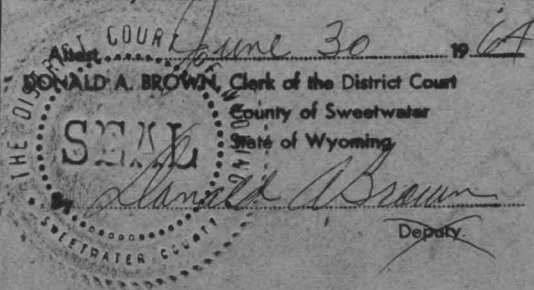 Attest June 30 1964
DONALD A. BROWN, Clerk of the District Court
County of Sweetwater
State of Wyoming
By Donald A Brown
Deputy
THE DISTRICT COURT
SEAL
WYOMING
SWEETWATER COUNTY